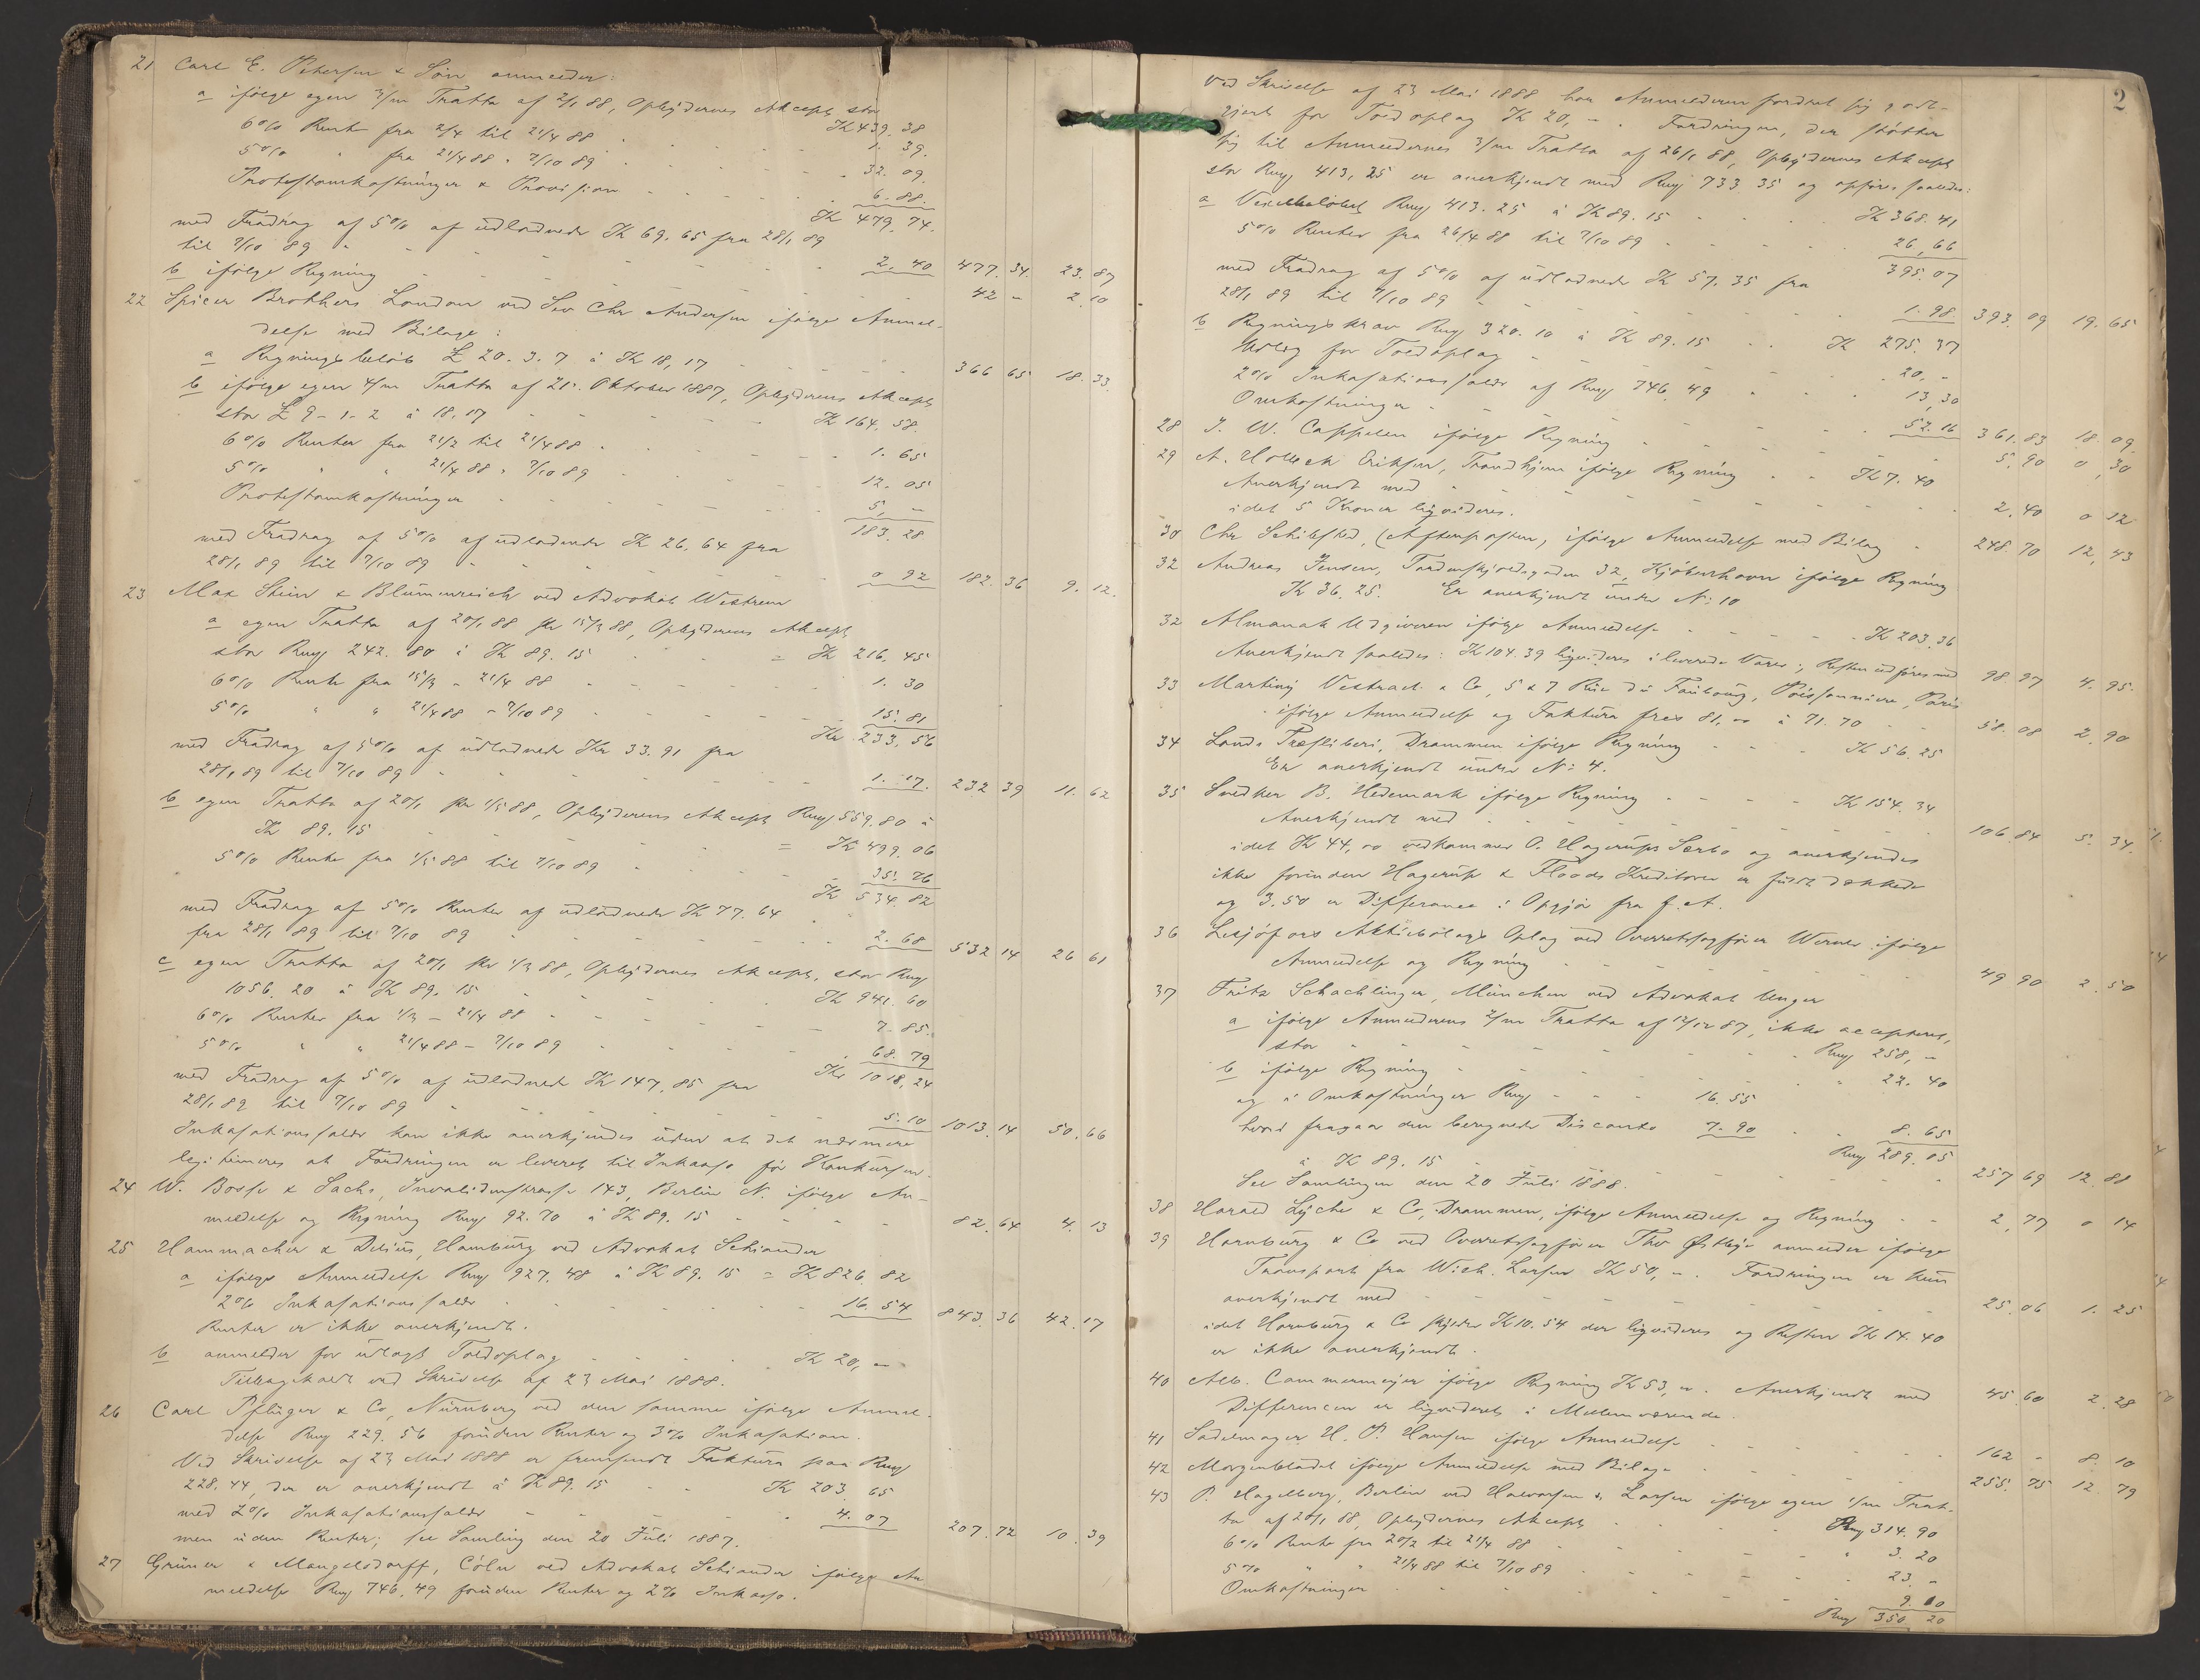 21 Carl E. Petersen & Søn anmelder:
a ifølge egen 3/m Tratta af 2/1 88, Opbyderens Akcept stor
Kr 439. 38
6% Rente fra 2/4 til 21/4 88 1. 39.
5% " fra 21/4 88 " 7/10 89 32. 09.
Protestomkostninger & Provision 6. 88.
Kr 479. 74.
med Fradrag af 5% af udlodnede Kr 69. 65 fra 28/1 89
til 7/10 89 2. 40 477. 34. 23. 87
b ifølge Regning 42 - 2. 10
22 Spicer Brothers London ved Sev Chr Andersen ifølge Anmel-
delse med Bilage:
a Regningsbeløb £ 20. 3. 7 à Kr 18,17 366 65 18. 33.
b ifølge egen 4/m Tratta af 21. Oktober 1887, Opbyderens Akcept
stor £ 9 - 1 - 2 à 18. 17 Kr 164. 58.
6% Renter fra 21/2 til 21/4 88 1. 65
5% " " 21/4 88 " 7/10 89 12. 05
Protestomkostninger 5, -
183. 28
med Fradrag af 5% af udlodnede Kr 26. 64 fra
28/1 89 til 7/10 89 0 92 182. 36 9. 12.
23 Max Stein & Blumenreich ved Advokat Westrum
a egen Tratta af 20/1 88 pr 15/3 88, Opbyderens Akcept
stor Rmg 242. 80 à Kr 89. 15 = Kr 216. 45
6% Rente fra 15/3 - 21/4 88 1. 30
5% " " 21/4 88 - 7/10 89 15. 81
Kr 233, 56
med Fradrag af 5% af udlodnede Kr 33. 91 fra
28/1 89 til 7/10 89 1. 17. 232 39 11. 62
b egen Tratta af 20/1 pr 1/5 88, Opbyderens Akcept Rmg 559. 80 à
Kr 89. 15 = Kr 499. 06
5% Rente fra 1/5 88 til 7/10 89 35. 76
Kr 534. 82
med Fradrag af 5% Renter af udlodnede Kr 77. 64
fra 28/1 89 til 7/10 89 2. 68 532 14 26 61
c egen Tratta af 20/1 pr 1/3 88, Opbydernes Akcept, stor Rmg
1056. 20 à Kr 89. 15 Kr 941. 60
6% Renter fra 1/3 - 21/4 88 7. 85.
5% " " 21/4 88 - 7/10 89 68. 79
Kr 1018, 24
med Fradrag af 5% af udlodnede Kr 147. 85 fra
28/1 89 til 7/10 89 5. 10 1013. 14 50. 66
Inkasationssalær kan ikke anerkjendes uden at det nærmere
legitimeres at Fordringen er leveret til Inkasso før Konkursen.
24 W. Bosse & Sachs, Invalidenstrasse 143, Berlin N. ifølge An-
meldelse og Regning Rmg 92. 70 à Kr 89. 15 82. 64 4. 13
25 Hammacher & Delius, Hamburg ved Advokat Schiander
a ifølge Anmeldelse Rmg 927, 48 à Kr 89. 15 = Kr 826. 82
2% Inkasationssalær 16 54 843. 36 42. 17
Renter er ikke anerkjendt.
b anmelder for udlagt Toldoplag Kr 20, -
Tilbagekaldt ved Skrivelse af 23 Mai 1888.
26 Carl Pflüger & Co, Nürnberg ved den samme ifølge Anmel-
delse Rmg 229. 56 foruden Renter og 3% Inkasation.
Ved Skrivelse af 23 Mai 1888 er fremsendt Faktura paa Rmg
228. 44, der er anerkjendt à Kr 89. 15 Kr 203. 65
med 2% Inkasationssalær 4. 07 207. 72 10. 39
men uden Renter; see Samling den 20 Juli 1887.
27 Grüner & Mangelsdorff, Cöln ved Advokat Schiander ifølge An
meldelse Rmg 746. 49 foruden Renter og 2% Inkasso.
2
Ved Skrivelse af 23 Mai 1888 har Anmelderen fordret sig godt-
gjort for Toldoplag Kr 20, -. Fordringen, der støtter
sig til Anmeldernes 3/m Tratta af 26/1 88, Opbydernes Akcept
stor Rmg 413, 25 er anerkjendt med Rmg 733 35 og opføres saaledes:
a Vexelbeløbet Rmg 413. 25 à Kr 89. 15 Kr 368. 41
5% Renter fra 26/4 88 til 7/10 89 26, 66
395. 07
med Fradrag af 5% af udlodnede Kr 57. 35 fra
28/1 89 til 7/10 89 1. 98. 393. 09 19. 65
b Regningskrav Rmg 320. 10 à Kr 89. 15 Kr 275. 37
Udlæg for Toldoplag 20, -
2% Inkasationssalær af Rmg 746. 49 13, 30
Omkostninger 52. 16 361. 83 18. 09.
28 J. W. Cappelen ifølge Regning 5. 90 0, 30
29 A. Holbæk Eriksen, Trondhjem ifølge Regning Kr 7. 40
Anerkjendt med 2. 40 0 12
idet 5 Kroner ligvideres.
30 Chr Schibsted, (Aftenposten) ifølge Anmeldelse med Bilag 248. 70 12, 43
32 Andreas Jensen, Tordenskjoldsgaden 32, Kjøbenhavn ifølge Regning
Kr 36. 25. Er anerkjendt under No 10
32 Almanak Udgiveren ifølge Anmeldelse Kr 203. 36
Anerkjendt saaledes: Kr 104. 39 ligvideres i leverede Varer; Resten udføres med 98. 97 4. 95.
33 Martiny Vestraet & Co, 5 & 7 Rue du Faubourg, Poissonniere, Paris
ifølge Anmeldelse og Faktura frcs 81, 00 à 71. 70 58. 08 2. 90
34 Lunds Træsliberi, Drammen ifølge Regning Kr 56. 25
Er anerkjendt under No 4.
35 Snedker B. Hedemark ifølge Regning Kr 154. 34
Anerkjendt med 106. 84 5. 34.
idet Kr 44, 00 vedkommer O. Hagerups Særbo og anerkjendes
ikke forinden Hagerup & Floods Kreditorer er fuldt dækkede
og 3. 50 er Differance i Opgjør fra f. A.
36 Lesjöfors Aktiebolags Oplag ved Overretssagfører Werner ifølge
Anmeldelse og Regning 49 90 2. 50
37 Fritz Schachlinger, München ved Advokat Unger
a ifølge Anmelderens 2/m Tratta af 12/12 87, ikke accepteret,
stor Rmg 258, -
b ifølge Regning " 22. 40
og i Omkostninger Rmg 16. 55
hvori fragaar den beregnede Disconto 7. 90 8. 65
Rmg 289. 05
à Kr 89. 15 257 69 12. 88
See Samlingen den 20 Juli 1888.
38 Harald Lyche & Co, Drammen, ifølge Anmeldelse og Regning 2, 77 0 14
39 Hornburg & Co ved Overretssagfører Thv Østbye anmelder ifølge
Transport fra Wilh. Larsen Kr 50, -. Fordringen er kun
anerkjendt med 25. 06 1. 25
idet Hornburg & Co skylder Kr 10. 54 der ligvideres og Resten Kr 14. 40
er ikke anerkjendt.
40 Alb. Cammermeyer ifølge Regning Kr 53, 00. Anerkjendt med 45. 60 2. 28
Differencen er ligvideret i Mellemværende.
41 Sadelmager H. P. Hansen ifølge Anmeldelse 162 - 8. 10
42 Morgenbladet ifølge Anmeldelse med Bilage 255. 75 12. 79
43 P. Hagelberg, Berlin ved Halvorsen & Larsen ifølge egen 1/m Trat-
ta af 20/1 88, Opbydernes Akcept Rmg 314. 90
6% Rente fra 20/2 til 21/4 88 " 3. 20
5% " " 21/4 88 til 7/10 89 23. -
Omkostninger 9. 10
Rmg 350. 20